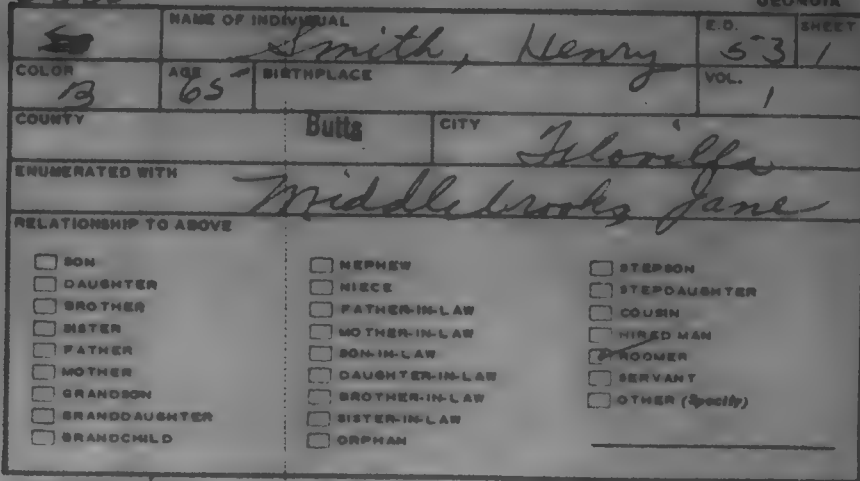 GEORGIA
NAME OF INDIVIDUAL
Smith, Henry
E.D.
53
SHEET
1
COLOR
B
AGE
65
BIRTHPLACE
VOL.
1
COUNTY
Butts
CITY
ENUMERATED WITH
Middlebrooks, Jane
RELATIONSHIP TO ABOVE
SON
DAUGHTER
BROTHER
SISTER
FATHER
MOTHER
GRANDSON
GRANDDAUGHTER
GRANDCHILD
NEPHEW
NIECE
FATHER-IN-LAW
MOTHER-IN-LAW
SON-IN-LAW
DAUGHTER-IN-LAW
BROTHER-IN-LAW
SISTER-IN-LAW
ORPHAN
STEPSON
STEPDAUGHTER
COUSIN
HIRED MAN
ROOMER
SERVANT
OTHER (Specify)